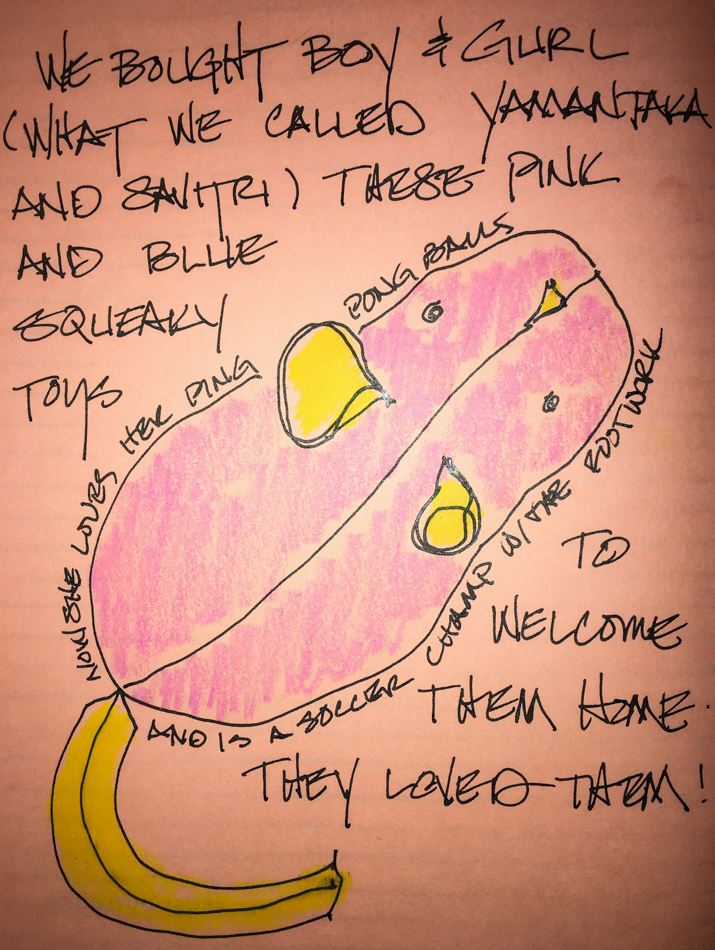 WE BOUGHT BOY & GURL
(WHAT WE CALLED YAMANTAKA
AND SAVITRI) THESE PINK
AND BLUE
SQUEAKY
TOYS
NOW SHE LOVES HER PING PONG BALLS
AND IS A SOCCER CHAMP W/ THE FOOTWORK
TO
WELCOME
THEM HOME.
THEY LOVED THEM!